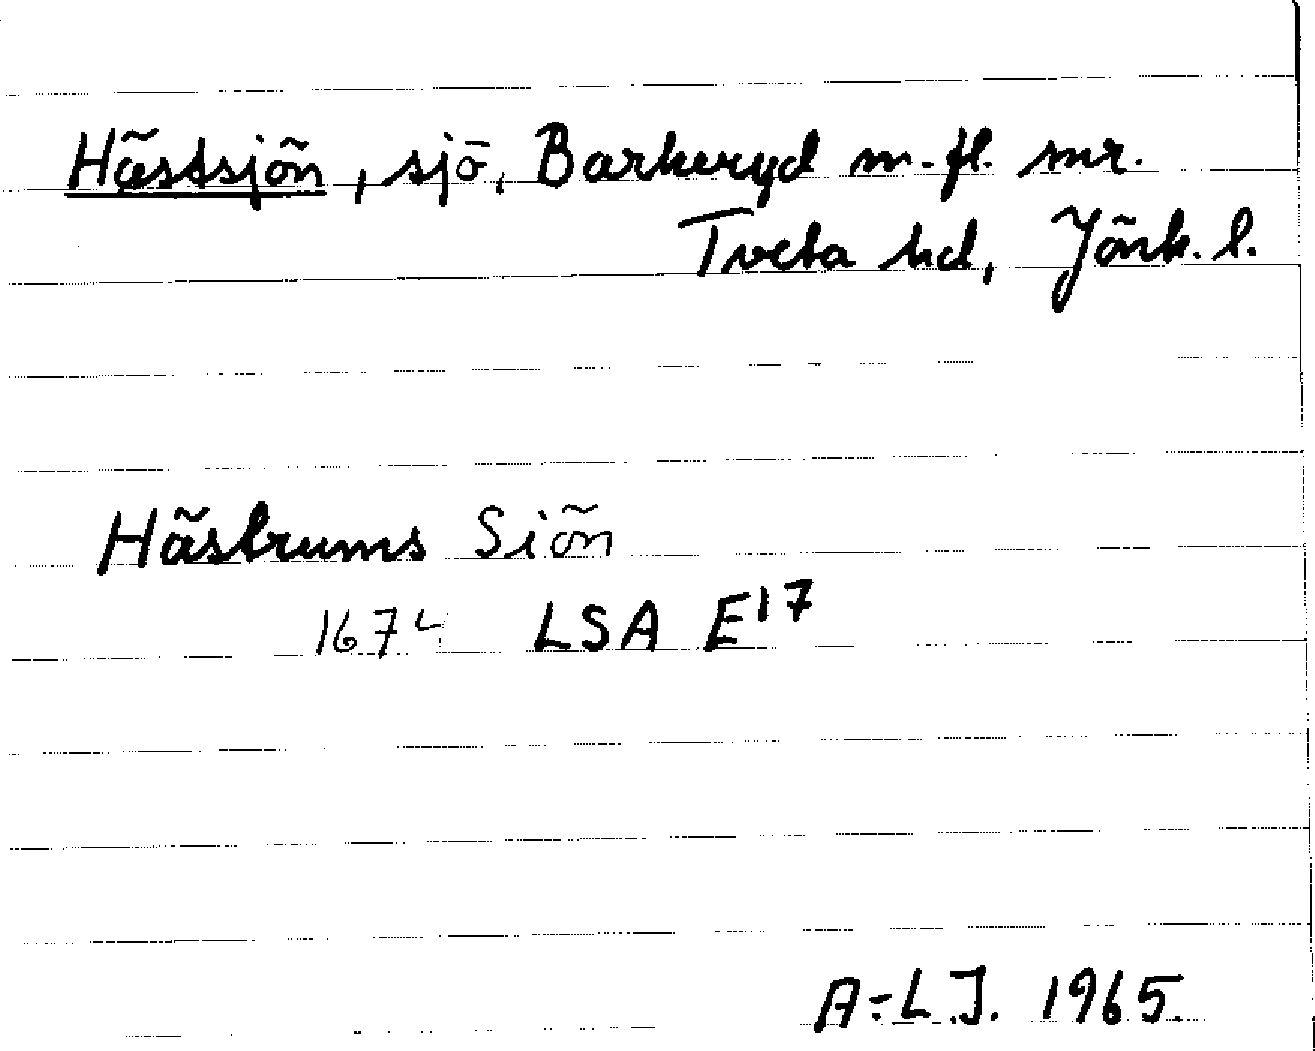 Hästsjön, sjö, Barkeryd m. fl. snr.
Tveta hd, Jönk. l.
Hästrums Siön
1674 LSA E17
A-L J. 1965.